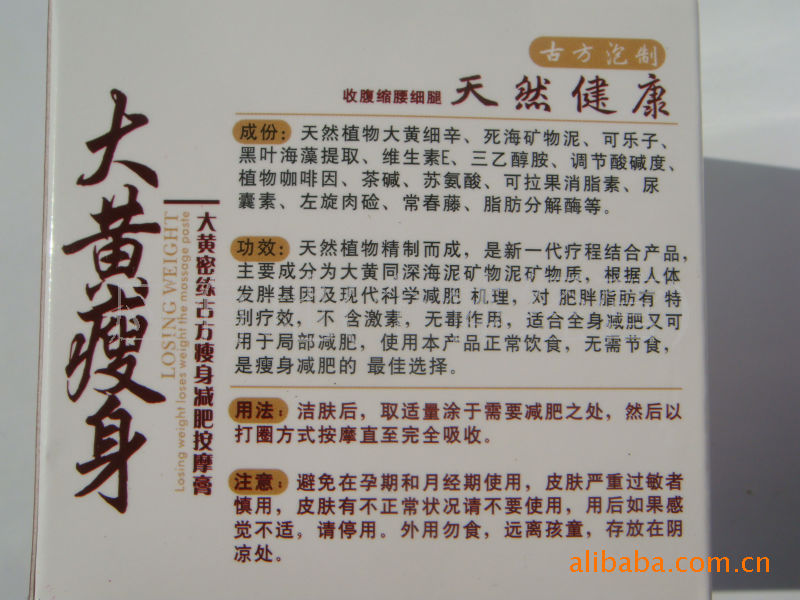 古方泡制
收腹缩腰细腿 天然健康
大黄瘦身
LOSING WEIGHT
Losing weight loses weight the massage paste
大黄密练古方瘦身减肥按摩膏
成份：天然植物大黄细辛、死海矿物泥、可乐子、
黑叶海藻提取、维生素E、三乙醇胺、调节酸碱度、
植物咖啡因、茶碱、苏氨酸、可拉果消脂素、尿
囊素、左旋肉硷、常春藤、脂肪分解酶等。
功效：天然植物精制而成，是新一代疗程结合产品，
主要成分为大黄同深海泥矿物泥矿物质，根据人体
发胖基因及现代科学减肥 机理，对 肥胖脂肪有 特
别疗效，不 含激素，无毒作用，适合全身减肥又可
用于局部减肥，使用本产品正常饮食，无需节食，
是瘦身减肥的 最佳选择。
用法：洁肤后，取适量涂于需要减肥之处，然后以
打圈方式按摩直至完全吸收。
注意：避免在孕期和月经期使用，皮肤严重过敏者
慎用，皮肤有不正常状况请不要使用，用后如果感
觉不适，请停用。外用勿食，远离孩童，存放在阴
凉处。
alibaba.com.cn